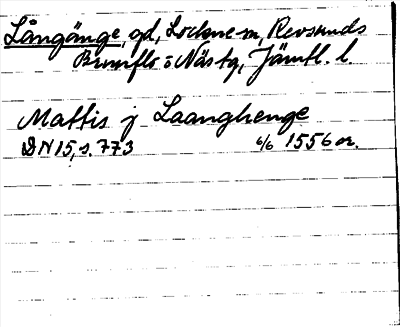 Långänge, gd, Lockne sn, Revsunds
Brunflo o Näs tg, Jämtl. l.
Mattis j Laanghenge
DN 15, s. 773 6/6 1556 or.